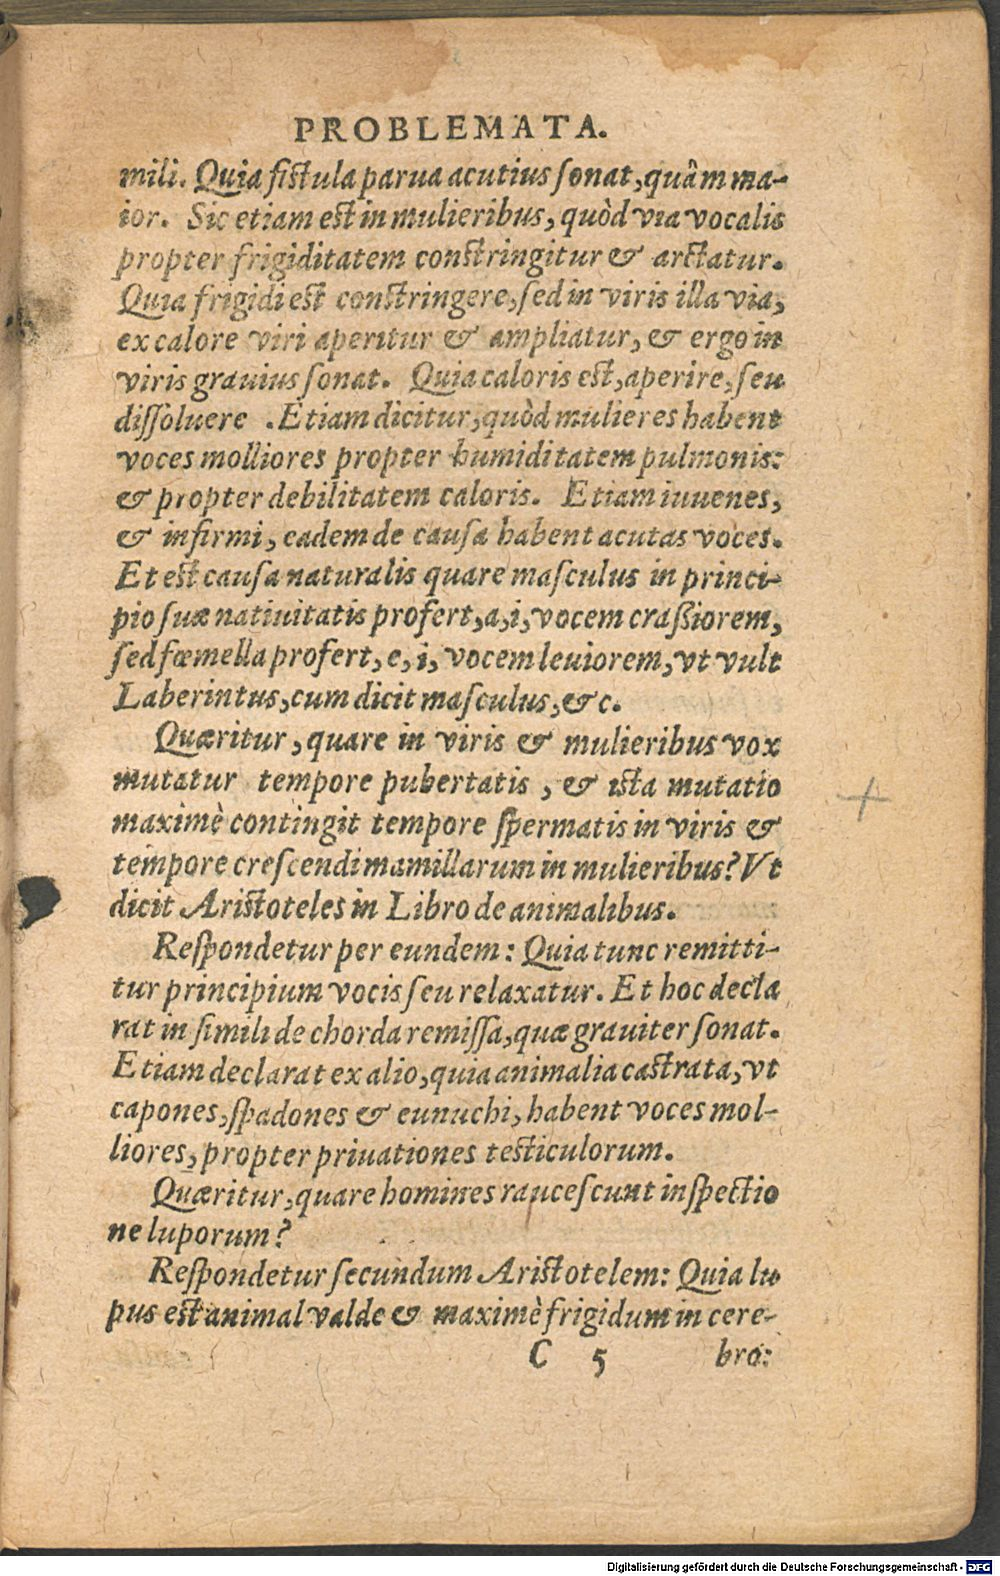 PROBLEMATA.
mili. Quia fistula parua acutius sonat, quâm ma-
ior. Sic etiam est in mulieribus, quòd via vocalis
propter frigiditatem constringitur & arctatur.
Quia frigidi est constringere, sed in viris illa via,
ex calore viri aperitur & ampliatur, & ergo in
viris grauius sonat. Quia caloris est, aperire, seu
dissoluere. Etiam dicitur, quòd mulieres habent
voces molliores propter humiditatem pulmonis:
& propter debilitatem caloris. Etiam iuuenes,
& infirmi, eadem de causa habent acutas voces.
Et est causa naturalis quare masculus in princi-
pio suæ natiuitatis profert, a, i, vocem craßiorem,
sed fœmella profert, e, i, vocem leuiorem, vt vult
Laberintus, cum dicit masculus, &c.
Quæritur, quare in viris & mulieribus vox
mutatur tempore pubertatis, & ista mutatio
maximè contingit tempore spermatis in viris &
tempore crescendi mamillarum in mulieribus? Vt
dicit Aristoteles in Libro de animalibus.
Respondetur per eundem: Quia tunc remitti-
tur principium vocis seu relaxatur. Et hoc decla
rat in simili de chorda remissa, quæ grauiter sonat.
Etiam declarat ex alio, quia animalia castrata, vt
capones, spadones & eunuchi, habent voces mol-
liores, propter priuationes testiculorum.
Quæritur, quare homines raucescunt inspectio
ne luporum?
Respondetur secundum Aristotelem: Quia lu
pus est animal valde & maximè frigidum in cere-
C 5 bro:
Digitalisierung gefördert durch die Deutsche Forschungsgemeinschaft - DFG